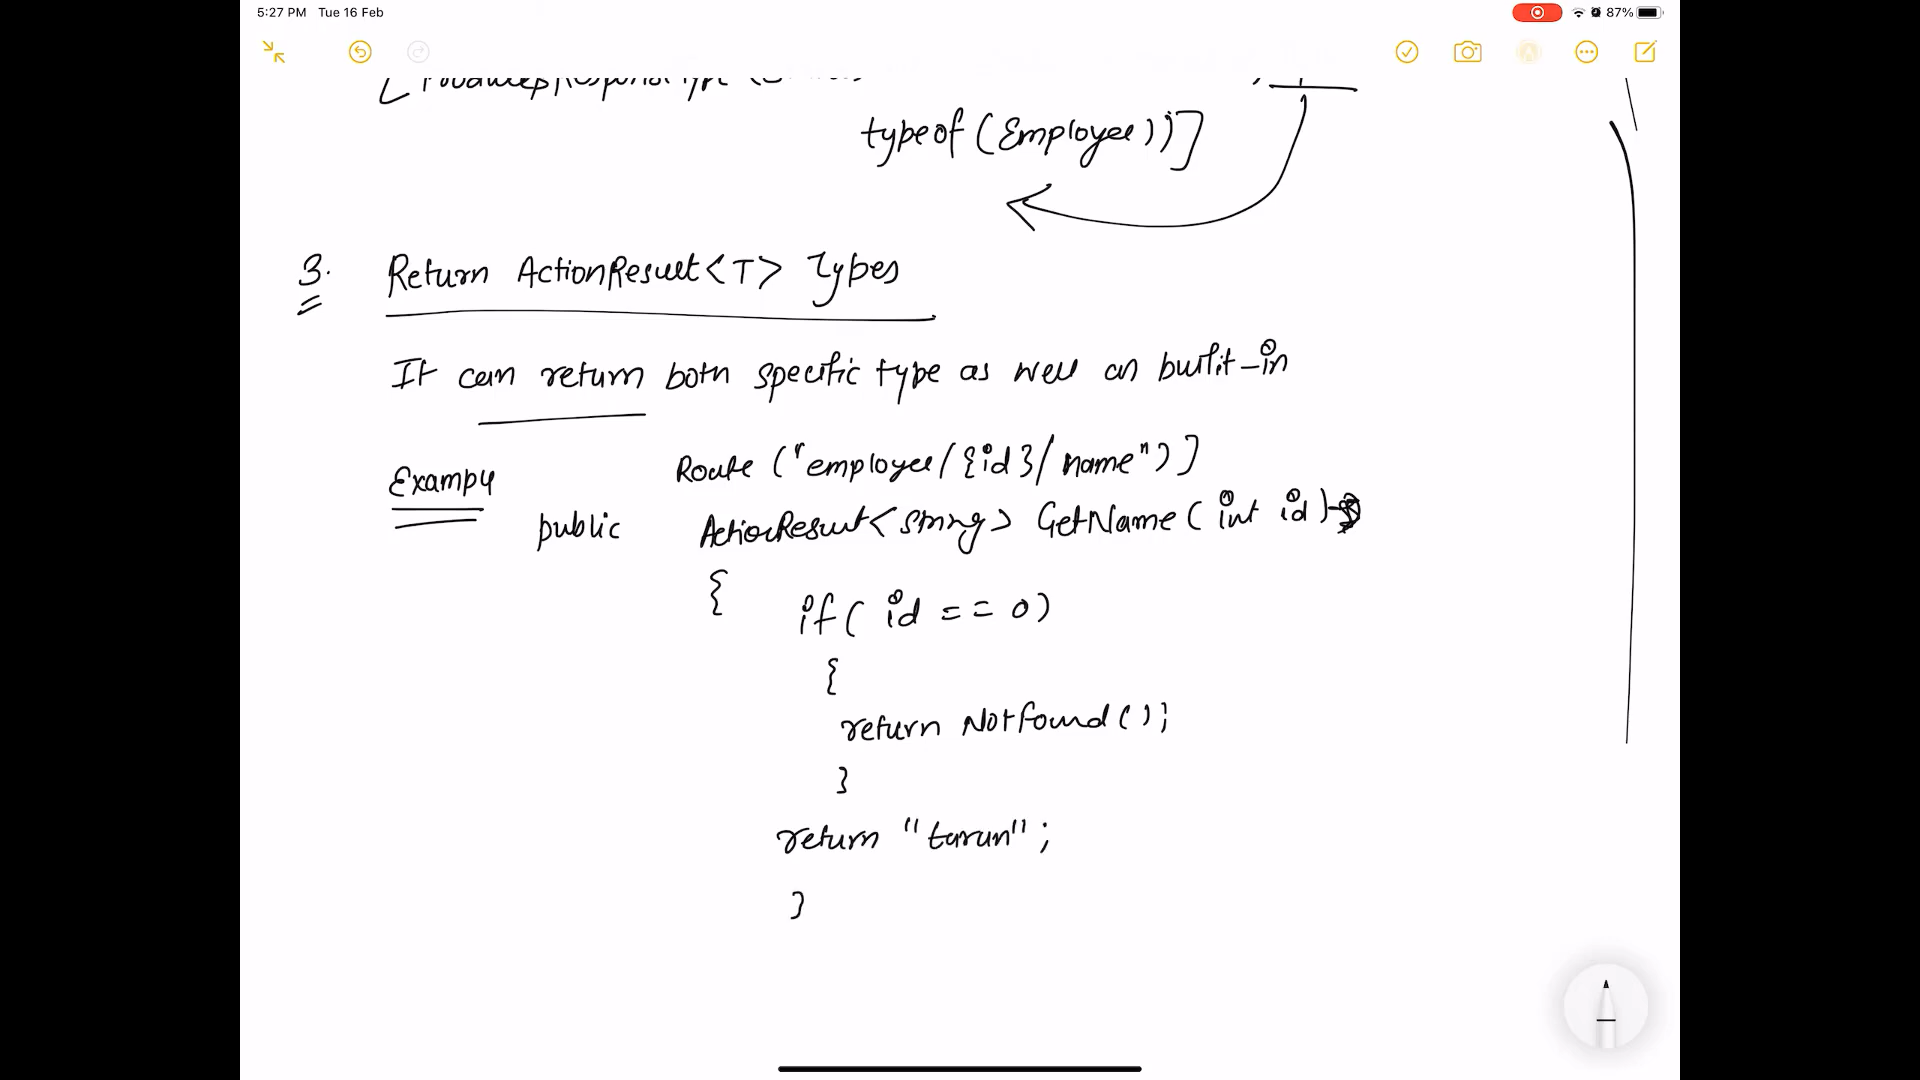 5:27 PM Tue 16 Feb
87%
typeof (Employee))]
3. Return ActionResult<T> Types
It can return both specific type as well as built-in
Route ("employee/{id}/name")]
Example
public ActionResult<string> GetName (int id)
{
if( id == 0)
{
return NotFound();
}
return "tarun";
}